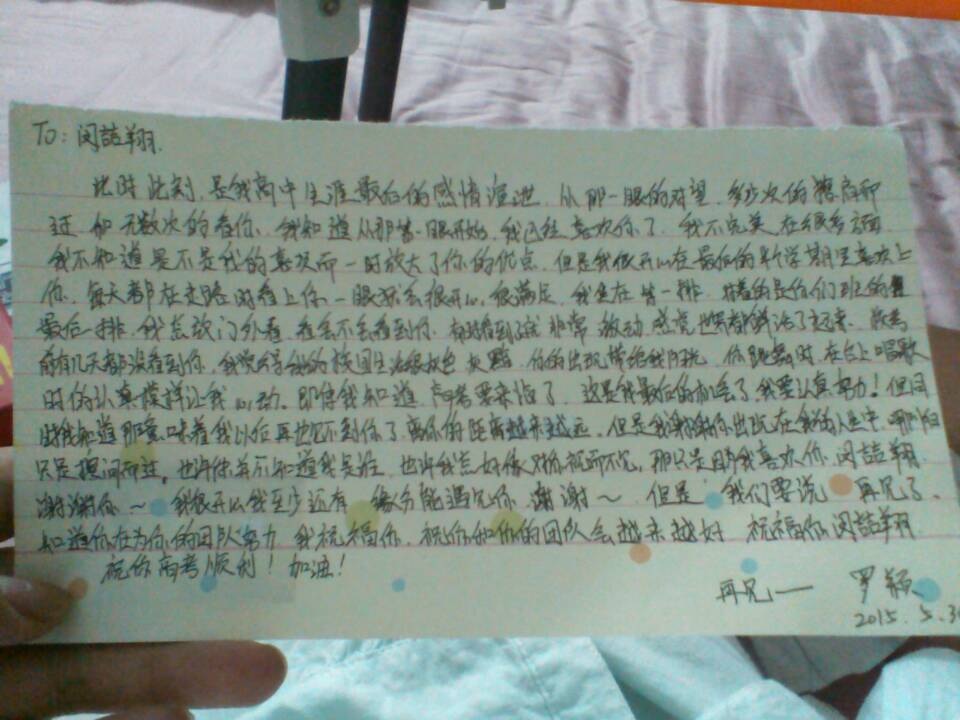 To: 闵喆翔.
此时此刻,是我高中生涯最后的感情宣泄,从那一眼的对望,多少次的擦肩而
过,如无数次的看你,我知道从那第一眼开始,我已经喜欢你了,我不完美,在很多方面
我不知道是不是我的喜欢而一时放大了你的优点,但是我很开心在最后的半学期里喜欢上
你,每天都在走路时看上你一眼就会很开心,很满足,我坐在第一排,你们班的
最后一排,我总放门外看,看会不会看到你,看到就非常激动,感觉世界都鲜活了起来
有几天都没看到你,我觉得我的校园生活很灰色,你的出现带给我阳光,你跳舞时,在台上唱歌
时的认真模样让我心动。即使我知道高考要来临了,这是我最后的机会了,我要认真努力!但同
时我知道那意味着我以后再也见不到你了,离你的距离越来越远。但是我谢谢你出现在我的人生中,哪怕
只是擦肩而过。也许你并不知道我是谁,也许我总好像对你视而不见,那只是因为我喜欢你,闵喆翔
谢谢你~ 我很开心我至少还有缘分能遇见你,谢谢~ 但是,我们要说再见了,
知道你在为你的团队努力,我祝福你,祝你和你的团队会越来越好,祝福你闵喆翔
祝你高考顺利!加油!
再见—— 罗颖
2015.5.30